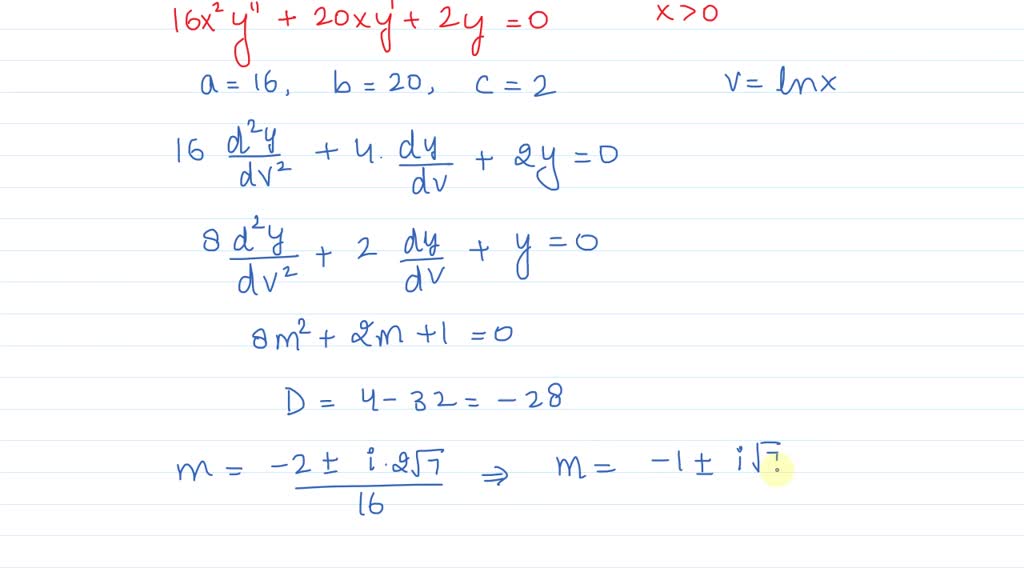 16x² y'' + 20xy' + 2y = 0 x > 0
a = 16, b = 20, c = 2 v = ln x
16 d²y/dv² + 4. dy/dv + 2y = 0
8 d²y/dv² + 2 dy/dv + y = 0
8m² + 2m + 1 = 0
D = 4 - 32 = -28
m = (-2 ± i·2√7)/16 ⇒ m = -1 ± i√7